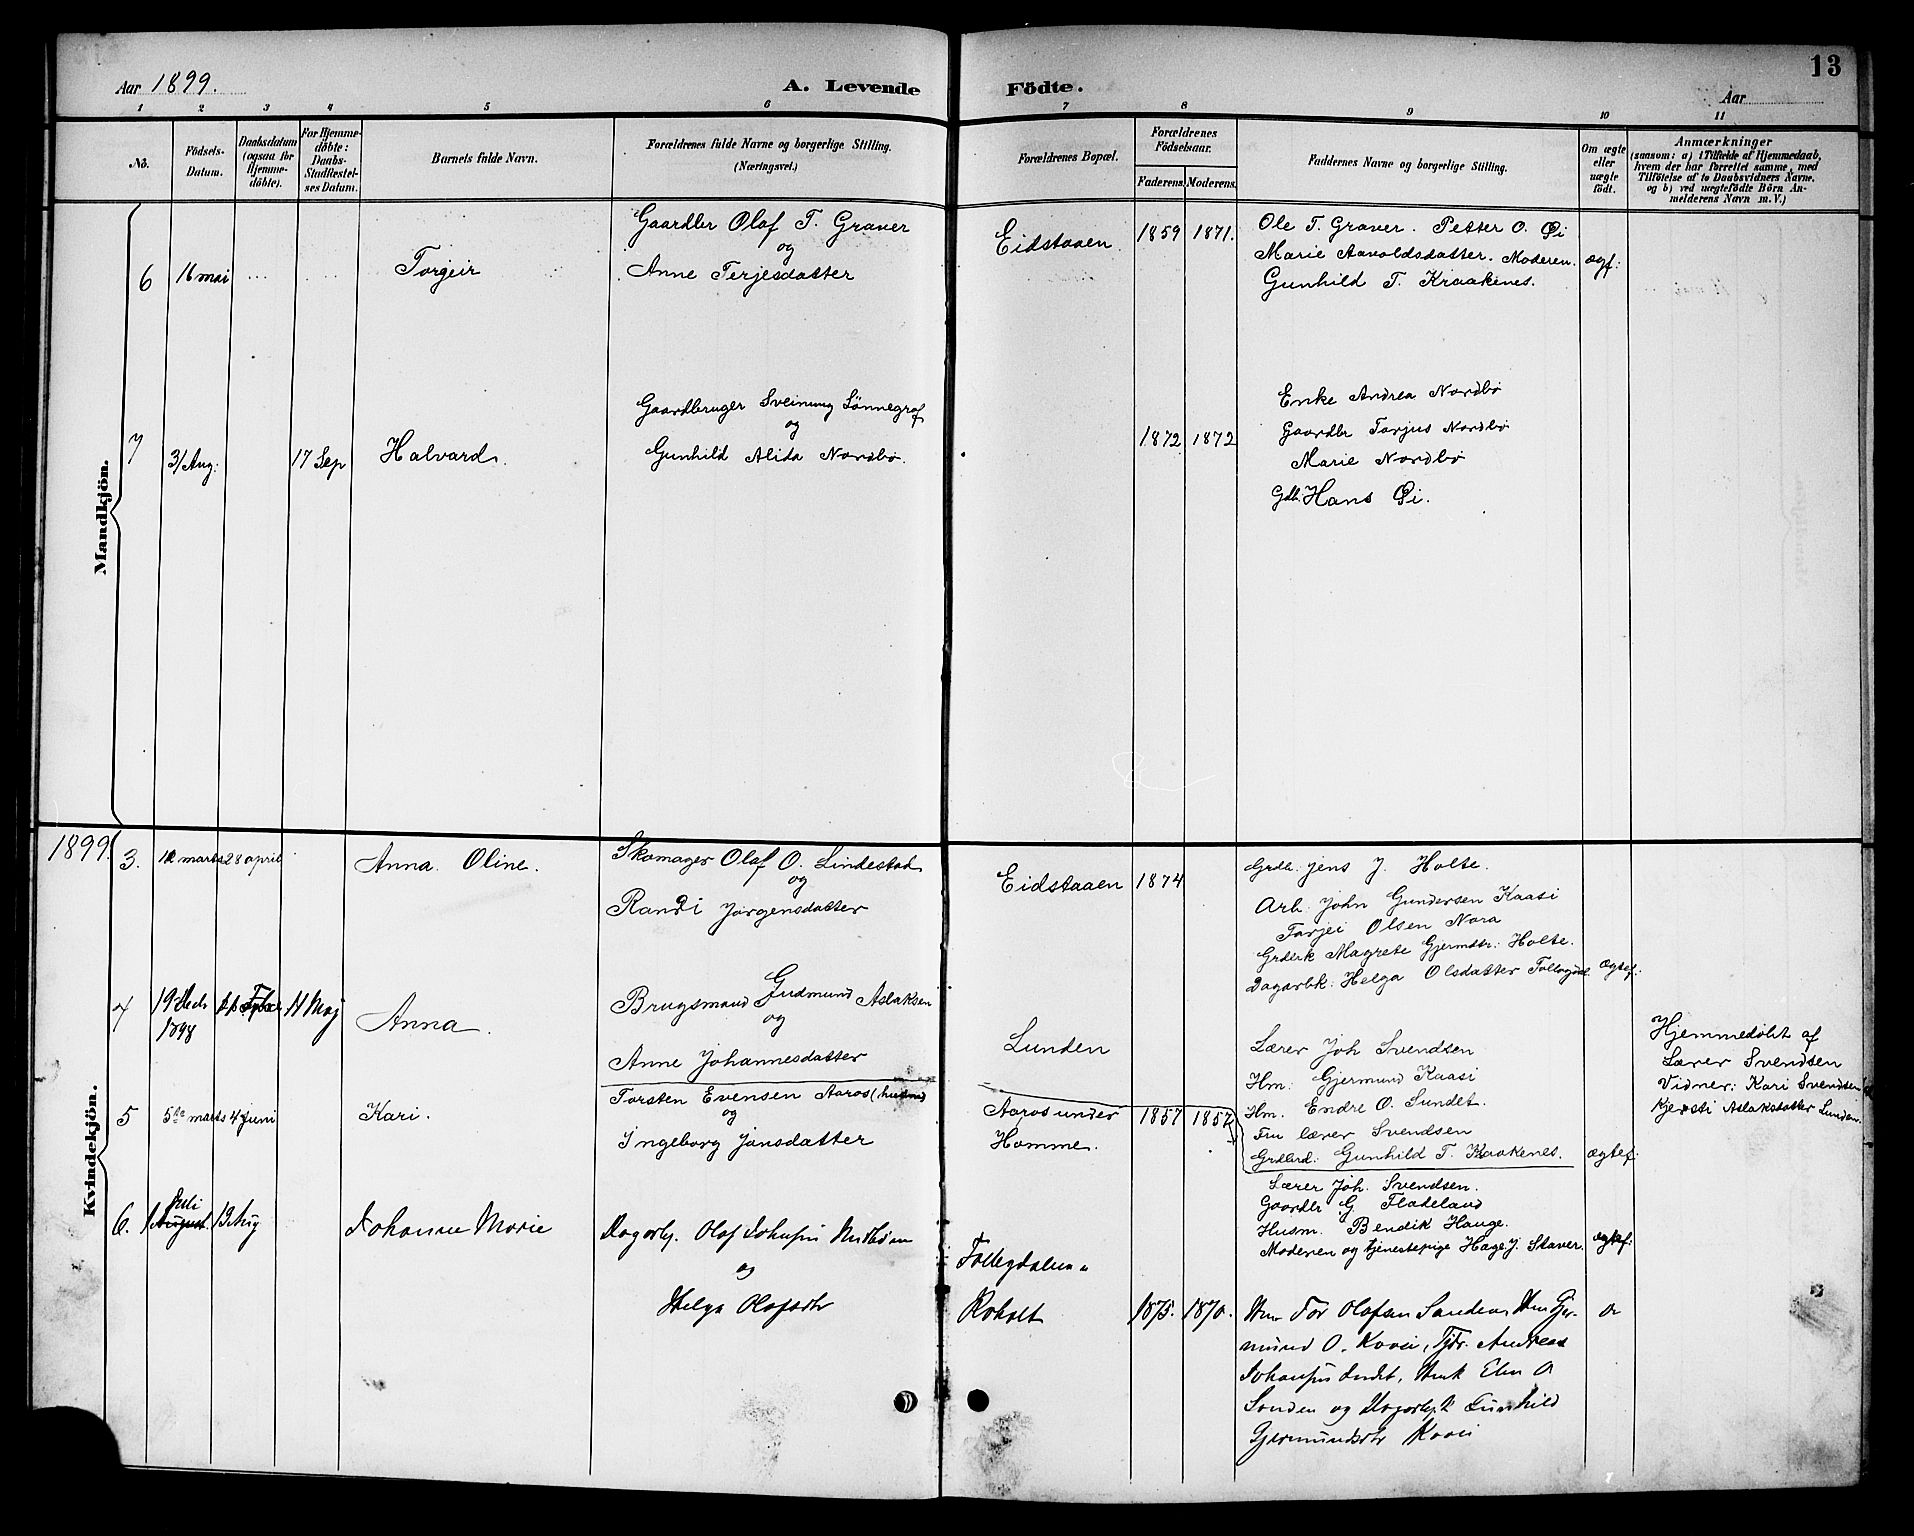 Aar 1899.
A. Levende Födte.
13
Aar
1 2 3 4 5 6 7 8 9 10 11
No.
Födsels-
Datum.
Daabsdatum
(ogsaa for
Hjemme-
döbte).
For Hjemme-
döbte:
Daabs-
Stadfæstel-
ses Datum.
Barnets fulde Navn.
Forældrenes fulde Navne og borgerlige Stilling.
(Næringsvei.)
Forældrenes Bopæl.
Forældrenes
Födselsaar.
Faderens. Moderens.
Faddernes Navne og borgerlige Stilling.
Om ægte
eller
uægte
födt.
Anmærkninger
(saasom: a) i Tilfælde af Hjemmedaab,
hvem der har forrettet samme, med
Tilföielse af to Daabsvidners Navne.
og b) ved uægtefödte Börn An-
melderens Navn m. V.)
Mandkjön.
6 16 mai Torgeir
Gaardbr Olaf T. Graver
og
Anne Terjesdatter
Eidstaaen 1859 1871.
Ole T. Graver. Petter O. Øi
Marie Aavoldsdatter. Moderen.
Gunhild T. Kraakenes.
ægf:
7 3/Aug: 17 Sep Halvard.
Gaardbruger Sveinung Lönnegraf
og
Gunhild Alida Nordbø.
1872 1872
Enke Andrea Nordbø
Gaardbr Tarjus Nordbø
Marie Nordbø
Gdb: Hans Øi.
1899.
Kvindekjön.
3. 12 marts 28 april Anna Oline.
Skomager Olaf O. Lindestad
og
Randi Jörgensdatter
Eidstaaen 1874
Grdb. Jens J. Holte.
Arb. John Gundersen Kaasi
Tarjei Olsen Nora
Grdbrk Magrete Gjermdtr: Holte.
Dagarbk. Helga Olsdatter
Ægtef:
4 19 Decb 1898 11 Maj Anna.
Brugsmand Gudmund Aslaksen
og
Anne Johannesdatter
Lunden
Lærer Joh Svendsen
Hm: Gjermund Kaasi
Hm. Endre O. Sundet.
Fru lærer Svendsen
Grdbrd: Gunhild T. Kaakenes.
ægtef:
Hjemmedøbt af
Lærer Svendsen
Vidner: Kari Svendsen
Kjersti Aslaksdatter Lunden.
5 5te marts 4 Juni Kari.
Torsten Evensen Aaros (husmd
og
Ingeborg Jansdatter
Aaros under
Homme.
1857 1857
Lærer Joh. Svendsen.
Gaardbr G. Fladeland
Husm. Bendik Hauge.
Moderen og tjenestepige Hage J. Staver.
ægtef:
6. 1 Juli August 13 Aug Johanne Marie
Dagarb. Olaf Johnsen
og
Helga Olafsdtr
Roholt 1875. 1870.
Hm Tor Olafsen Sanden, Hm Gjer-
mund O. Kaasi, Tjdr. Andreas